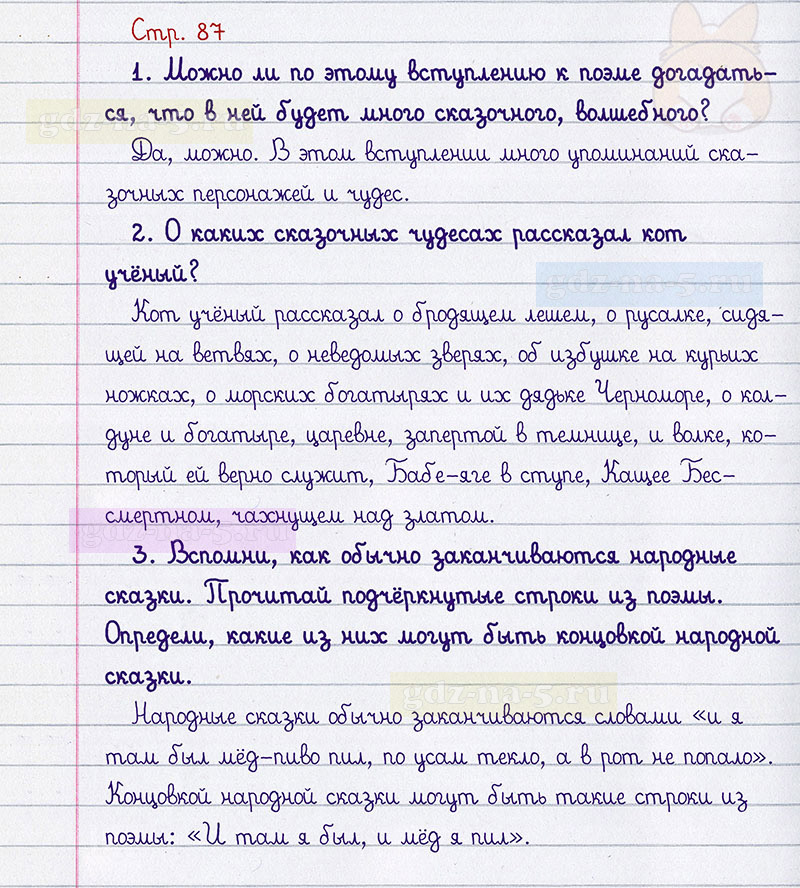 Стр. 87
1. Можно ли по этому вступлению к поэме догадать-
ся, что в ней будет много сказочного, волшебного?
gdz-na-5.ru
Да, можно. В этом вступлении много упоминаний ска-
зочных персонажей и чудес.
2. О каких сказочных чудесах рассказал кот
учёный?
gdz-na-5.ru
Кот учёный рассказал о бродящем лешем, о русалке, сидя-
щей на ветвях, о неведомых зверях, об избушке на курьих
ножках, о морских богатырях и их дядьке Черноморе, о кол-
дуне и богатыре, царевне, запертой в темнице, и волке, ко-
торый ей верно служит, Бабе-яге в ступе, Кащее Бес-
смертном, чахнущем над златом.
gdz-na-5.ru
3. Вспомни, как обычно заканчиваются народные
сказки. Прочитай подчёркнутые строки из поэмы.
Определи, какие из них могут быть концовкой народной
сказки.
gdz-na-5.ru
Народные сказки обычно заканчиваются словами «и я
там был мёд-пиво пил, по усам текло, а в рот не попало».
Концовкой народной сказки могут быть такие строки из
поэмы: «И там я был, и мёд я пил».